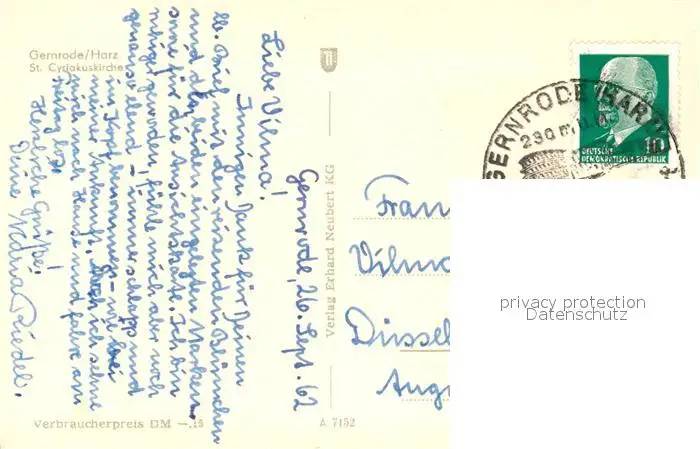 Gernrode/Harz
St. Cyriakuskirche
Liebe Vilma!
Gernrode, 26. Sept. 62
Innigen Dank für Deinen
lb. Brief mit den reisenden Blümchen
und den beiden eingelegten Marken
sowie für die Ansichtskarte. Ich bin
ruhiger geworden, fühle mich aber noch
genau so elend - immer schlapp und
im Kopf benommen - wie bei
meiner Ankunft. Doch ich sehne
mich nach Hause und fahre am
Freitag los.
Herzliche Grüße!
Deine Riedel.
Verlag Erhard Neubert KG
Verbraucherpreis DM -,15
A 7152
GERNRODE (HARZ)
230 m ü. M.
10
DEUTSCHE
DEMOKRATISCHE REPUBLIK
Frau
Vilma
Düssel
Aug
privacy protection
Datenschutz